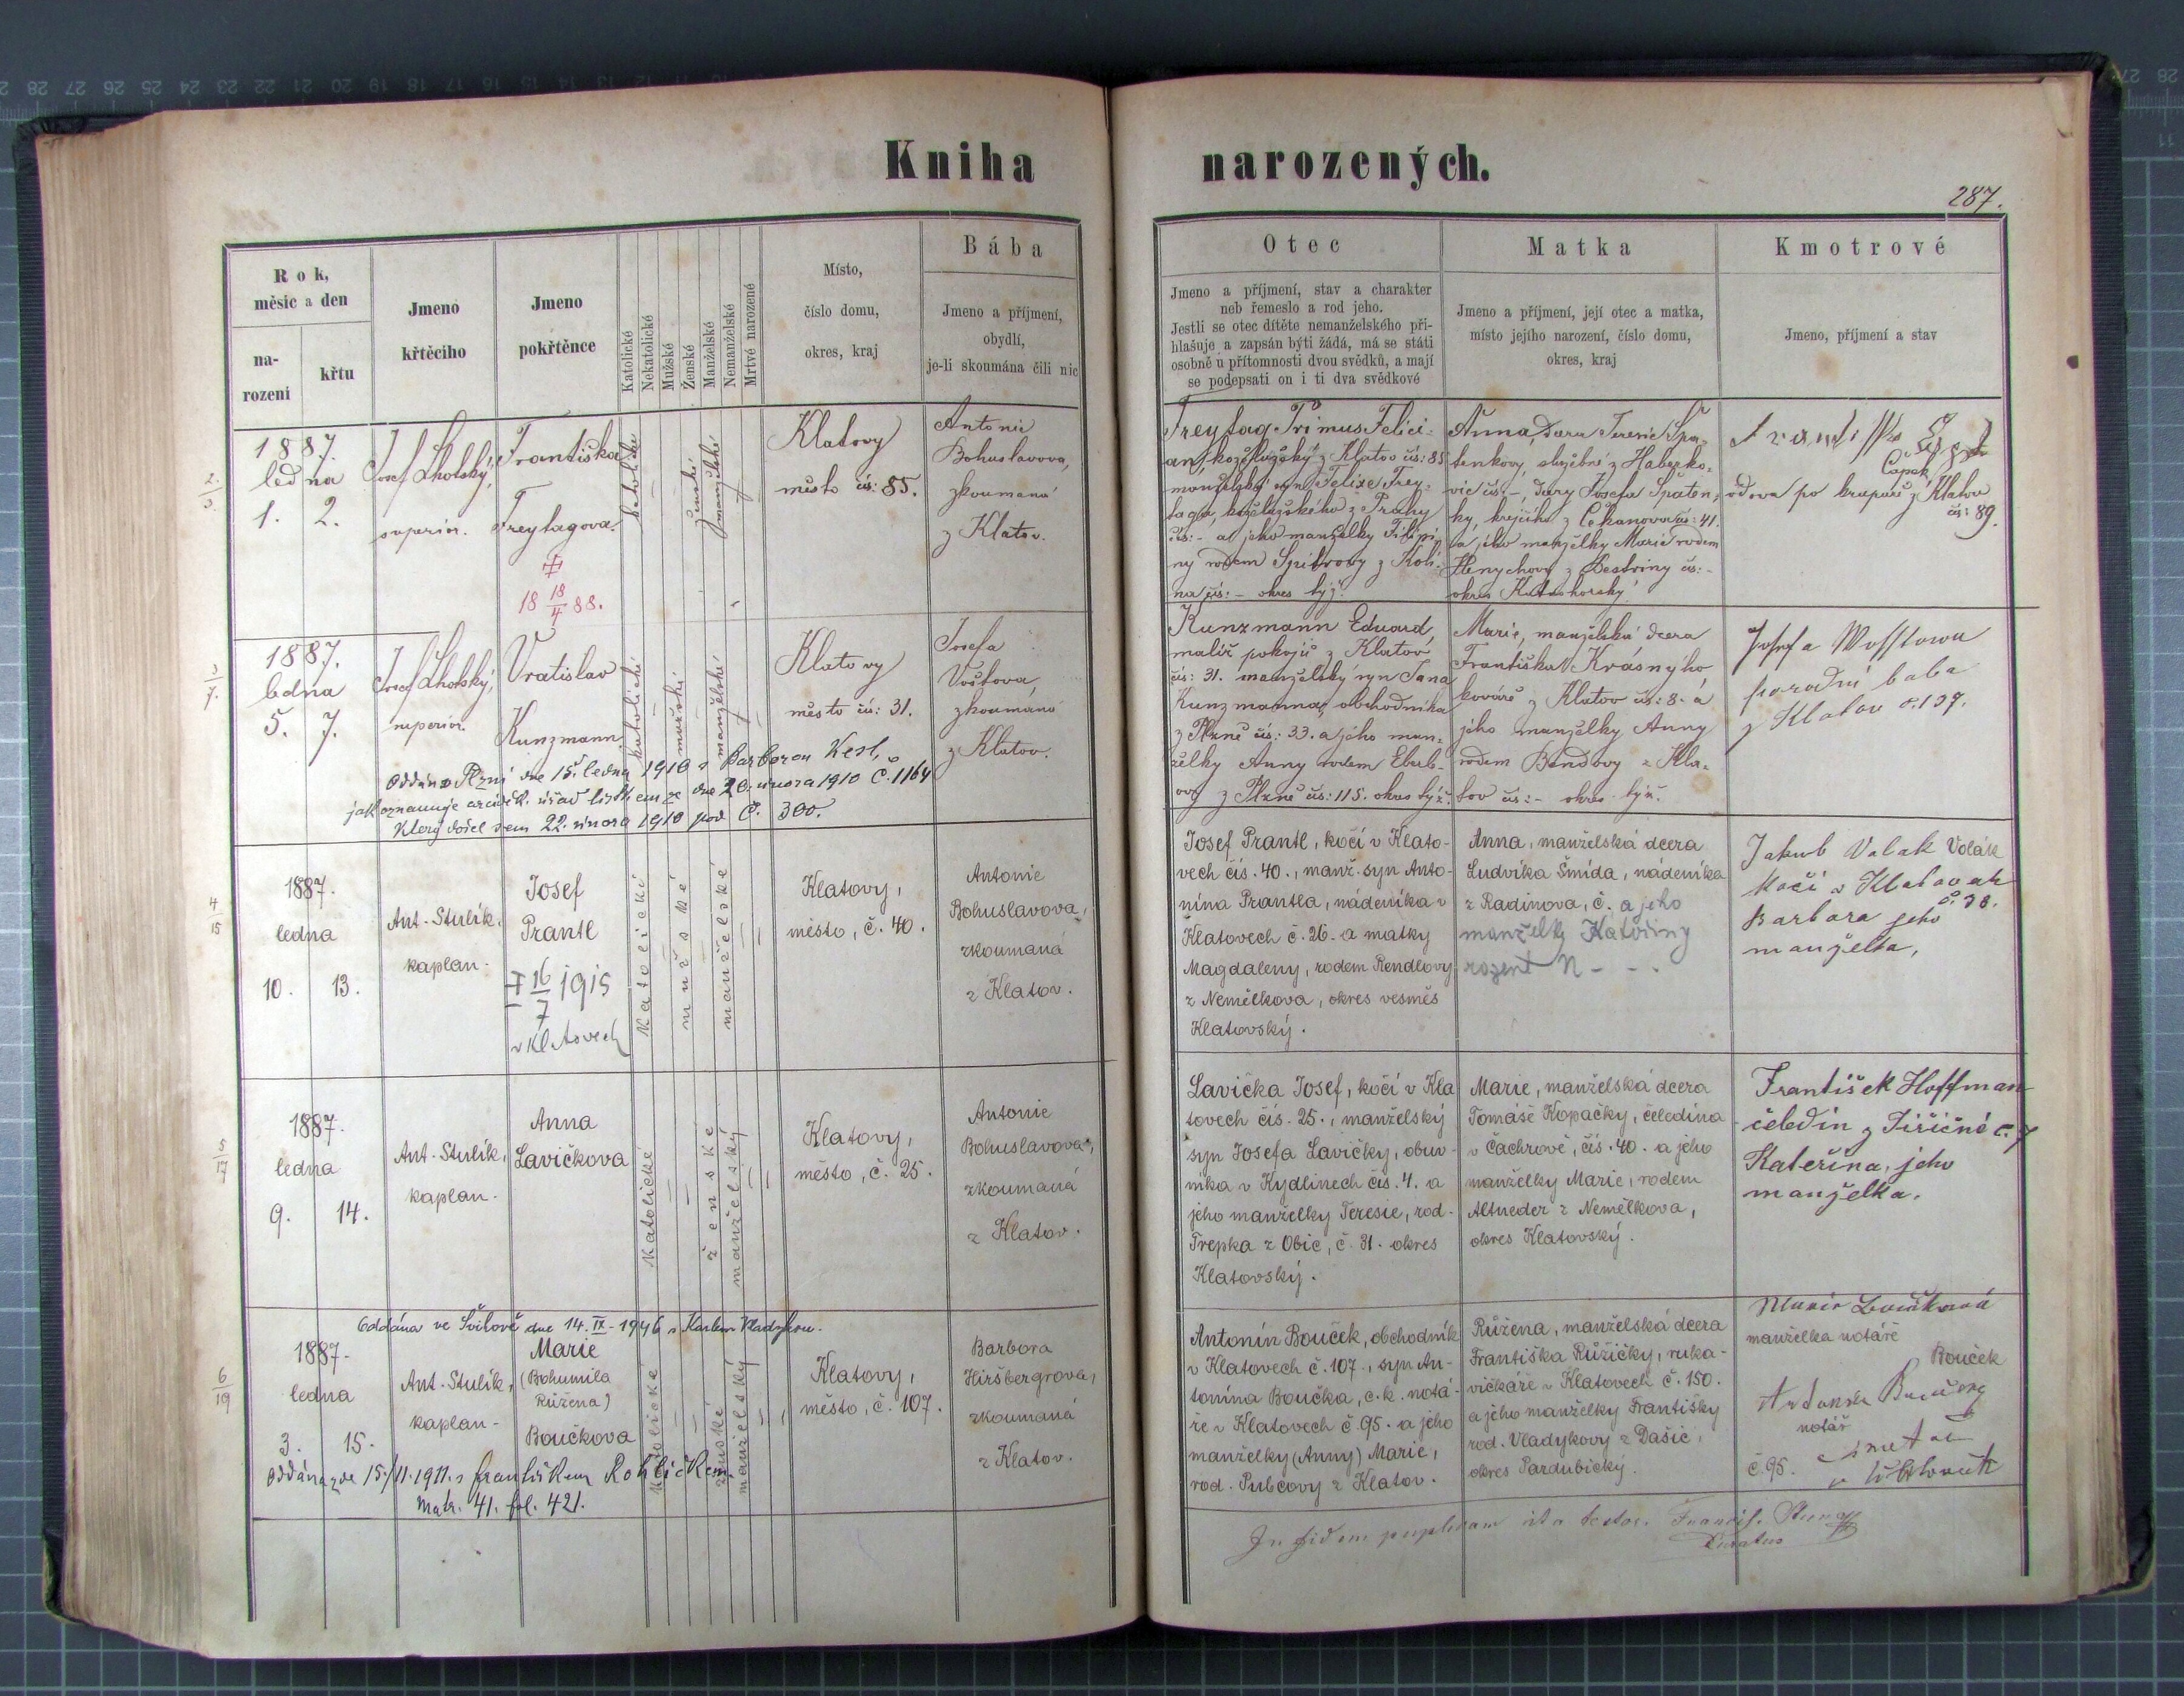 Kniha narozených.
287.
Rok,
měsíc a den
na-
rození
křtu
Jmeno
křtěcího
Jmeno
pokřtěnce
Katolické
Nekatolické
Mužské
Ženské
Manželské
Nemanželské
Mrtvé narozené
Místo,
číslo domu,
okres, kraj
Bába
Jmeno a příjmení,
obydlí,
je-li skoumána čili nic
Otec
Jmeno a příjmení, stav a charakter
neb řemeslo a rod jeho.
Jestli se otec dítěte nemanželského při-
hlašuje a zapsán býti žádá, má se státi
osobně u přítomnosti dvou svědků, a mají
se podepsati on i ti dva svědkové
Matka
Jmeno a příjmení, její otec a matka,
místo jejího narození, číslo domu,
okres, kraj
Kmotrové
Jmeno, příjmení a stav
2.
3
1887.
ledna
1. 2.
Josef Lhotský,
superior.
Františka
Freytagova
18 18/4 88.
katolické
ženské
manželské
Klatovy
město čís: 85.
Antonie
Bohuslavova,
zkoumaná
z Klatov.
Freytag Primus Felici-
an, koželužský z Klatov čís: 85
manželský syn Felixe Frey-
taga, koželužského z Prahy
čís: - a jeho manželky Filipi-
ny rodem Spitrovy z Kolí-
na čís: - okres týž.
Anna, dcera Terezie Špa-
tenkovy, služebné z Haberko-
vic čís: -, dcery Josefa Špaten-
ky, krejčího z Čekanova čís: 41.
a jeho manželky Marie rodem
Henychovy z Bestviny čís: -
okres Kutnohorský.
Čapek
vdova po krupaři z Klatov
čís: 89.
3
7.
1887.
ledna
5. 7.
Josef Lhotský,
superior.
Vratislav
Kunzmann
katolické
mužské
manželské
Klatovy
město čís: 31.
Josefa
Voštova,
zkoumaná
z Klatov.
Oddán v Plzni dne 15. ledna 1910 s Barborou Vesl,
jak oznamuje arciděk. úřad listem ze dne 20. února 1910 č. 1164
který došel sem 22. února 1910 pod č. 300.
Kunzmann Eduard,
malíř pokojů z Klatov
čís: 31. manželský syn Jana
Kunzmanna, obchodníka
z Plzně čís: 33. a jeho man-
želky Anny rodem Eberl-
ovy z Plzně čís: 115. okres týž.
Marie, manželská dcera
Františka Krásnýho
kováře z Klatov čís: 8. a
jeho manželky Anny
rodem Bendovy z Kla-
tov čís: - okres týž.
Josefa Wosstowa
porodní baba
z Klatov č. 137.
4
15
1887.
ledna
10. 13.
Ant. Stulík,
kaplan.
Josef
Prantl
16/7 1915
v Klatovech
katolické
mužské
manželské
Klatovy,
město, č. 40.
Antonie
Bohuslavova,
zkoumaná
z Klatov.
Josef Prantl, kočí v Klato-
vech čís. 40., manž. syn Anto-
nína Prantla, nádeníka v
Klatovech č. 26. a matky
Magdaleny, rodem Rendlovy
z Nemělkova, okres vesměs
Klatovský.
Anna, manželská dcera
Ludvíka Šmída, nádeníka
z Radinova, č. a jeho
manželky Kateřiny
rozené N - - .
Jakub Valak Volák
Kočí v Klatovech
č. 38.
Barbara jeho
manželka,
5
17
1887.
ledna
9. 14.
Ant. Stulík,
kaplan.
Anna
Lavičkova
Katolické
ženské
manželský
Klatovy,
město, č. 25.
Antonie
Bohuslavova,
zkoumaná
z Klatov.
Lavička Josef, kočí v Kla
tovech čís. 25., manželský
syn Josefa Lavičky, obuv-
níka v Kydlinech čís. 4. a
jeho manželky Teresie, rod.
Trepka z Obic, č. 31. okres
Klatovský.
Marie, manželská dcera
Tomáše Kopačky, čeledína
v Čachrově, čís. 40. a jeho
manželky Marie, rodem
Altneder z Nemělkova,
okres Klatovský.
František Hoffman
čeledín z Jiřičné č. 7
Kateřina, jeho
manželka.
6
19
Oddána ve Švihově dne 14. IX. 1946 s Karlem Vladykou.
1887.
ledna
3. 15.
Ant. Stulík,
kaplan.
Marie
(Bohumila
Růžena)
Boučkova
Katolické
ženské
manželský
Klatovy,
město, č. 107.
Barbora
Hiršbergrova,
zkoumaná
z Klatov.
Oddána zde 15./11. 1911. s Františkem Rohlíčkem.
Matr. 41. fol. 421.
Antonín Bouček, obchodník
v Klatovech č. 107., syn An-
tonína Boučka, c. k. notá-
ře v Klatovech č. 95. a jeho
manželky (Anny) Marie,
rod. Pubcovy z Klatov.
Růžena, manželská dcera
Františka Růžičky, ruka-
vičkáře v Klatovech č. 150.
a jeho manželky Františky
rod. Vladykovy z Dašic,
okres Pardubický.
Marie Boučková
manželka notáře
Bouček
notář
č. 95.
In fidem ita testor. Francis.
Curatus